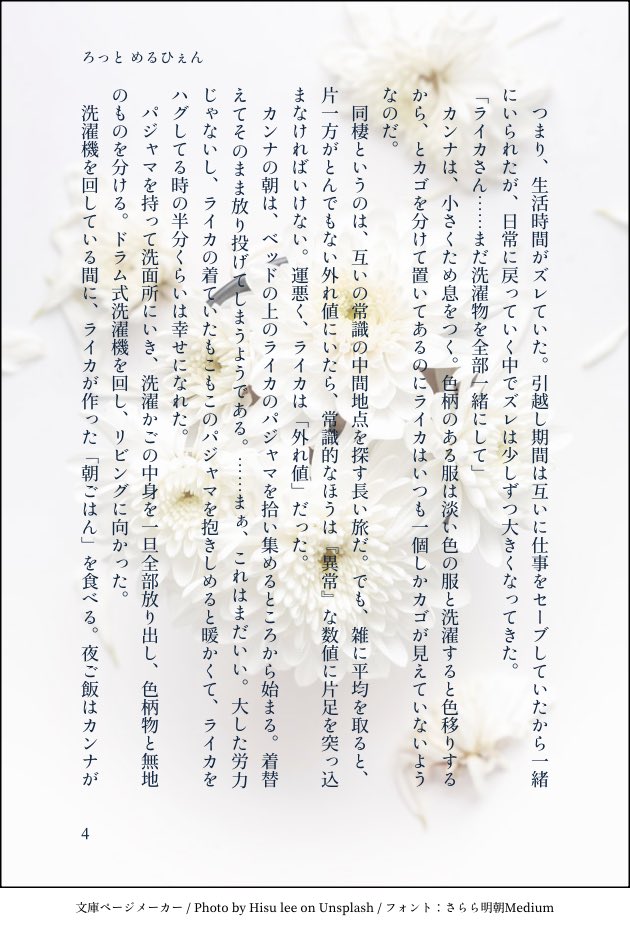 ろっと めるひぇん
つまり、生活時間がズレていた。引越し期間は互いに仕事をセーブしていたから一緒
にいられたが、日常に戻っていく中でズレは少しずつ大きくなってきた。
「ライカさん……まだ洗濯物を全部一緒にして」
カンナは、小さくため息をつく。色柄のある服は淡い色の服と洗濯すると色移りする
から、とカゴを分けて置いてあるのにライカはいつも一個しかカゴが見えていないよう
なのだ。
同棲というのは、互いの常識の中間地点を探す長い旅だ。でも、雑に平均を取ると、
片一方がとんでもない外れ値にいたら、常識的なほうは『異常』な数値に片足を突っ込
まなければいけない。運悪く、ライカは「外れ値」だった。
カンナの朝は、ベッドの上のライカのパジャマを拾い集めるところから始まる。着替
えてそのまま放り投げてしまうようである。……まぁ、これはまだいい。大した労力
じゃないし、ライカの着ていたもこもこのパジャマを抱きしめると暖かくて、ライカを
ハグしてる時の半分くらいは幸せになれた。
パジャマを持って洗面所にいき、洗濯かごの中身を一旦全部放り出し、色柄物と無地
のものを分ける。ドラム式洗濯機を回し、リビングに向かった。
洗濯機を回している間に、ライカが作った「朝ごはん」を食べる。夜ご飯はカンナが
4
文庫ページメーカー / Photo by Hisu lee on Unsplash / フォント：さらら明朝Medium